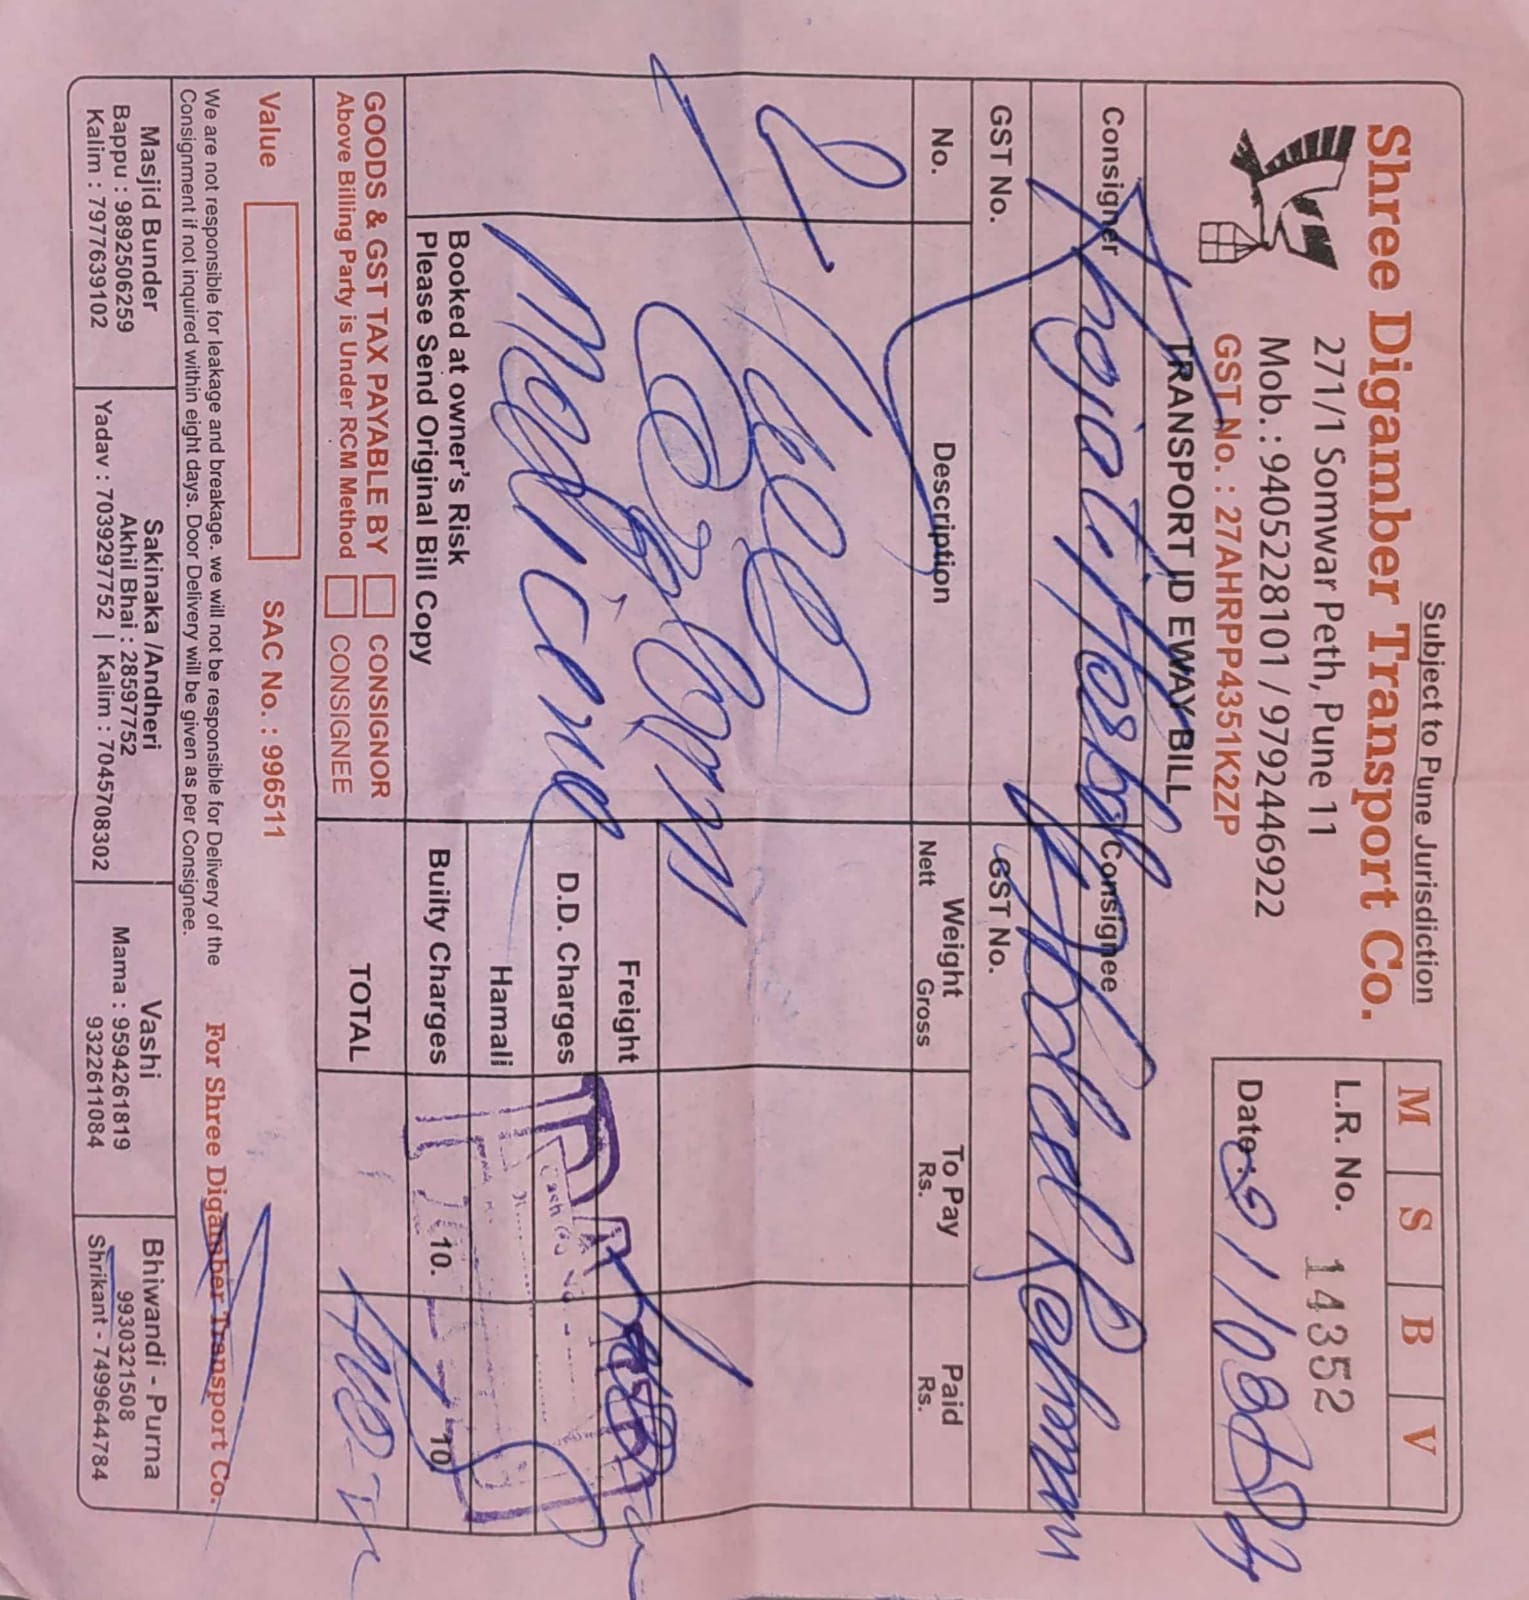 Subject to Pune Jurisdiction
Shree Digamber Transport Co.
271/1 Somwar Peth, Pune 11
Mob. : 9405228101 / 9792446922
GST No. : 27AHRPP4351K2ZP
TRANSPORT ID EWAY BILL
M S B V
L.R. No. 14352
Date
Consigner
Consignee Abdul Rehman
GST No.
GST No.
No. Description Weight To Pay Paid
Nett Gross Rs. Rs.
2
Medicine
Freight
D.D. Charges
Hamali
Builty Charges 10. 10
Booked at owner's Risk
Please Send Original Bill Copy
GOODS & GST TAX PAYABLE BY CONSIGNOR
Above Billing Party is Under RCM Method CONSIGNEE
TOTAL
Value SAC No. : 996511
We are not responsible for leakage and breakage. we will not be responsible for Delivery of the
Consignment if not inquired within eight days. Door Delivery will be given as per Consignee.
For Shree Digamber Transport Co.
Masjid Bunder
Bappu : 9892506259
Kalim : 7977639102
Sakinaka /Andheri
Akhil Bhai : 28597752
Yadav : 7039297752 | Kalim : 7045708302
Vashi
Mama : 9594261819
9322611084
Bhiwandi - Purna
9930321508
Shrikant - 7499644784